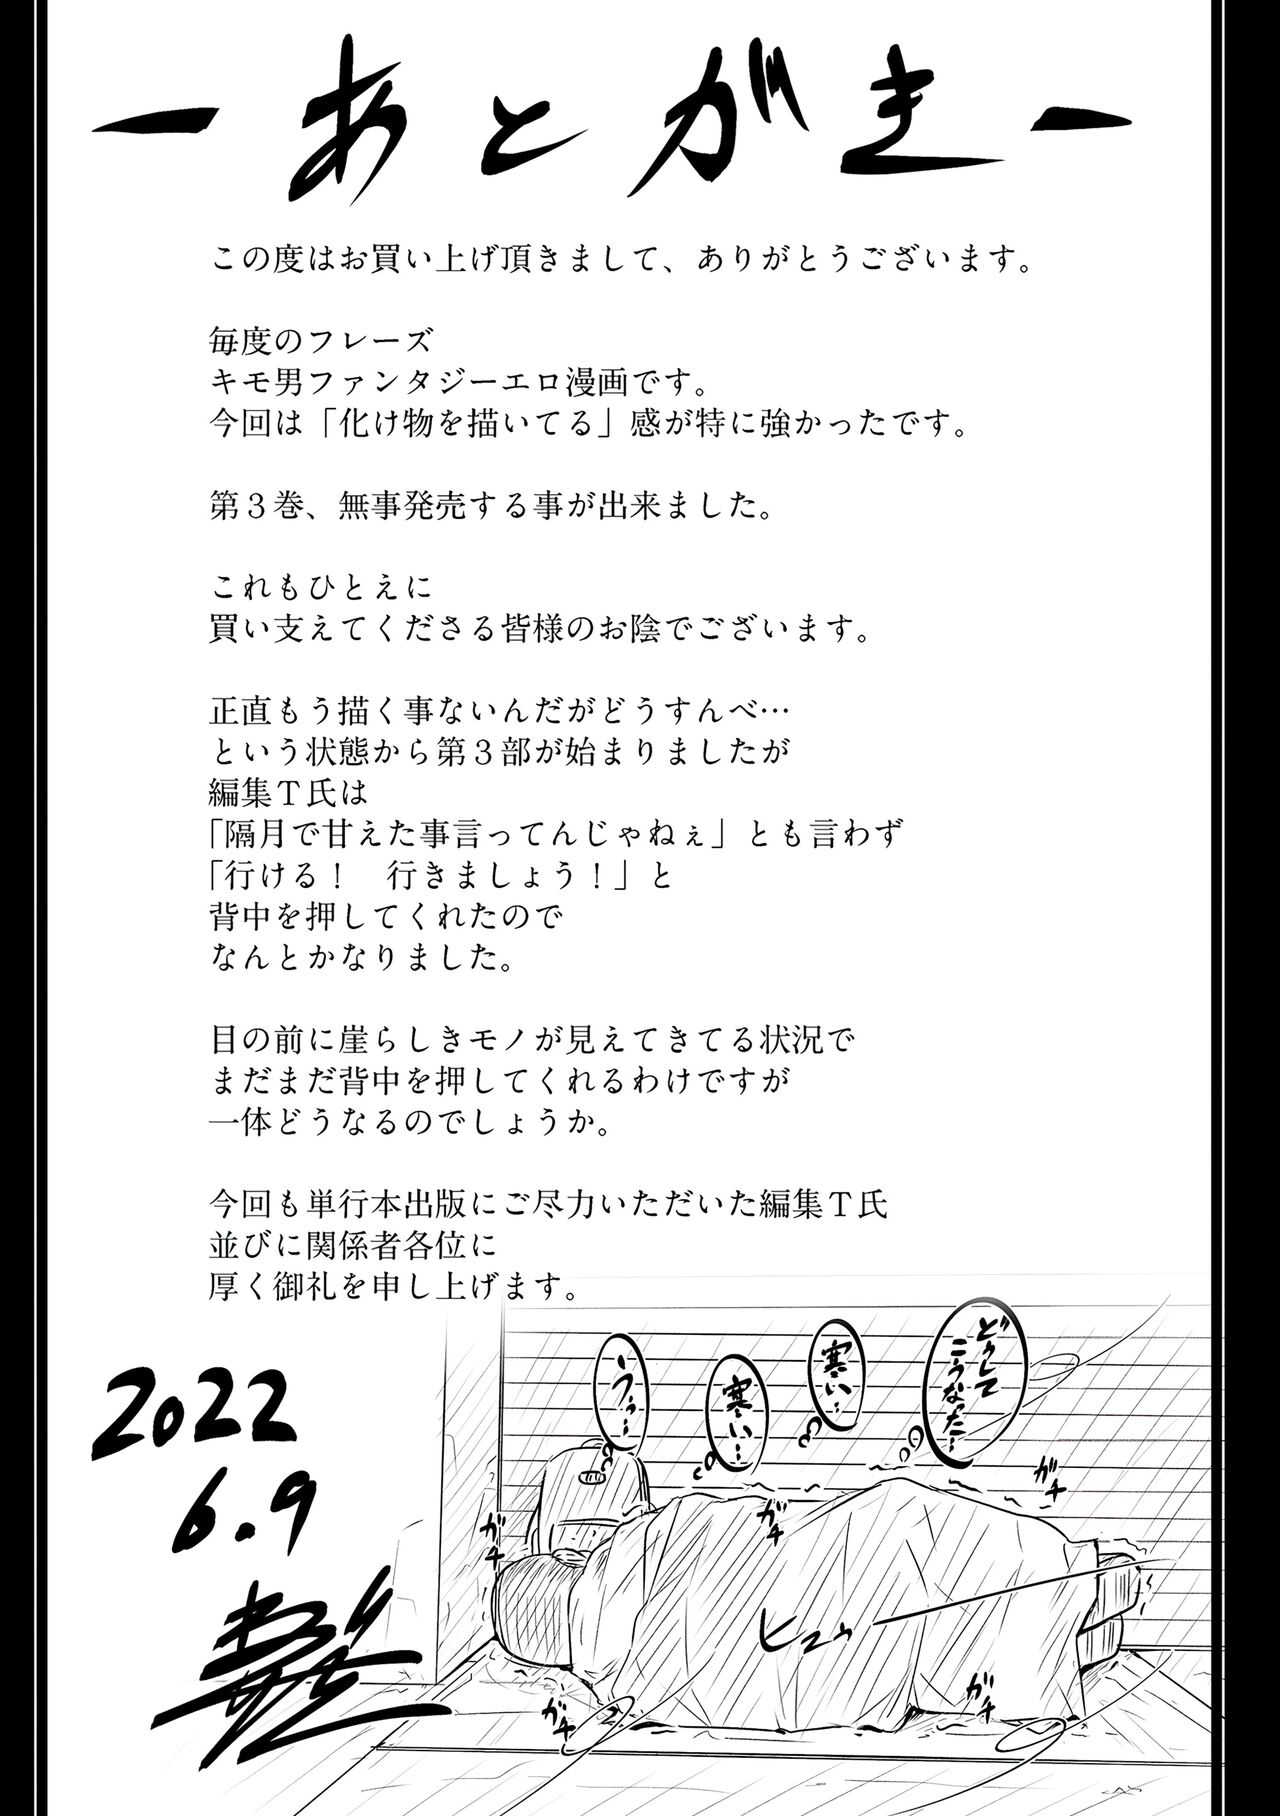 －あとがき－
この度はお買い上げ頂きまして、ありがとうございます。
毎度のフレーズ
キモ男ファンタジーエロ漫画です。
今回は「化け物を描いてる」感が特に強かったです。
第３巻、無事発売する事が出来ました。
これもひとえに
買い支えてくださる皆様のお陰でございます。
正直もう描く事ないんだがどうすんべ…
という状態から第３部が始まりましたが
編集Ｔ氏は
「隔月で甘えた事言ってんじゃねぇ」とも言わず
「行ける！　行きましょう！」と
背中を押してくれたので
なんとかなりました。
目の前に崖らしきモノが見えてきてる状況で
まだまだ背中を押してくれるわけですが
一体どうなるのでしょうか。
今回も単行本出版にご尽力いただいた編集Ｔ氏
並びに関係者各位に
厚く御礼を申し上げます。
どうして
こうなった…
寒い…
寒い…
うぅ…
ガチ
ガチ
ヒュゥ
ガチ
ガチ
2022
6.9